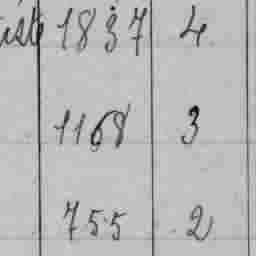 1837 4
1168 3
755 2